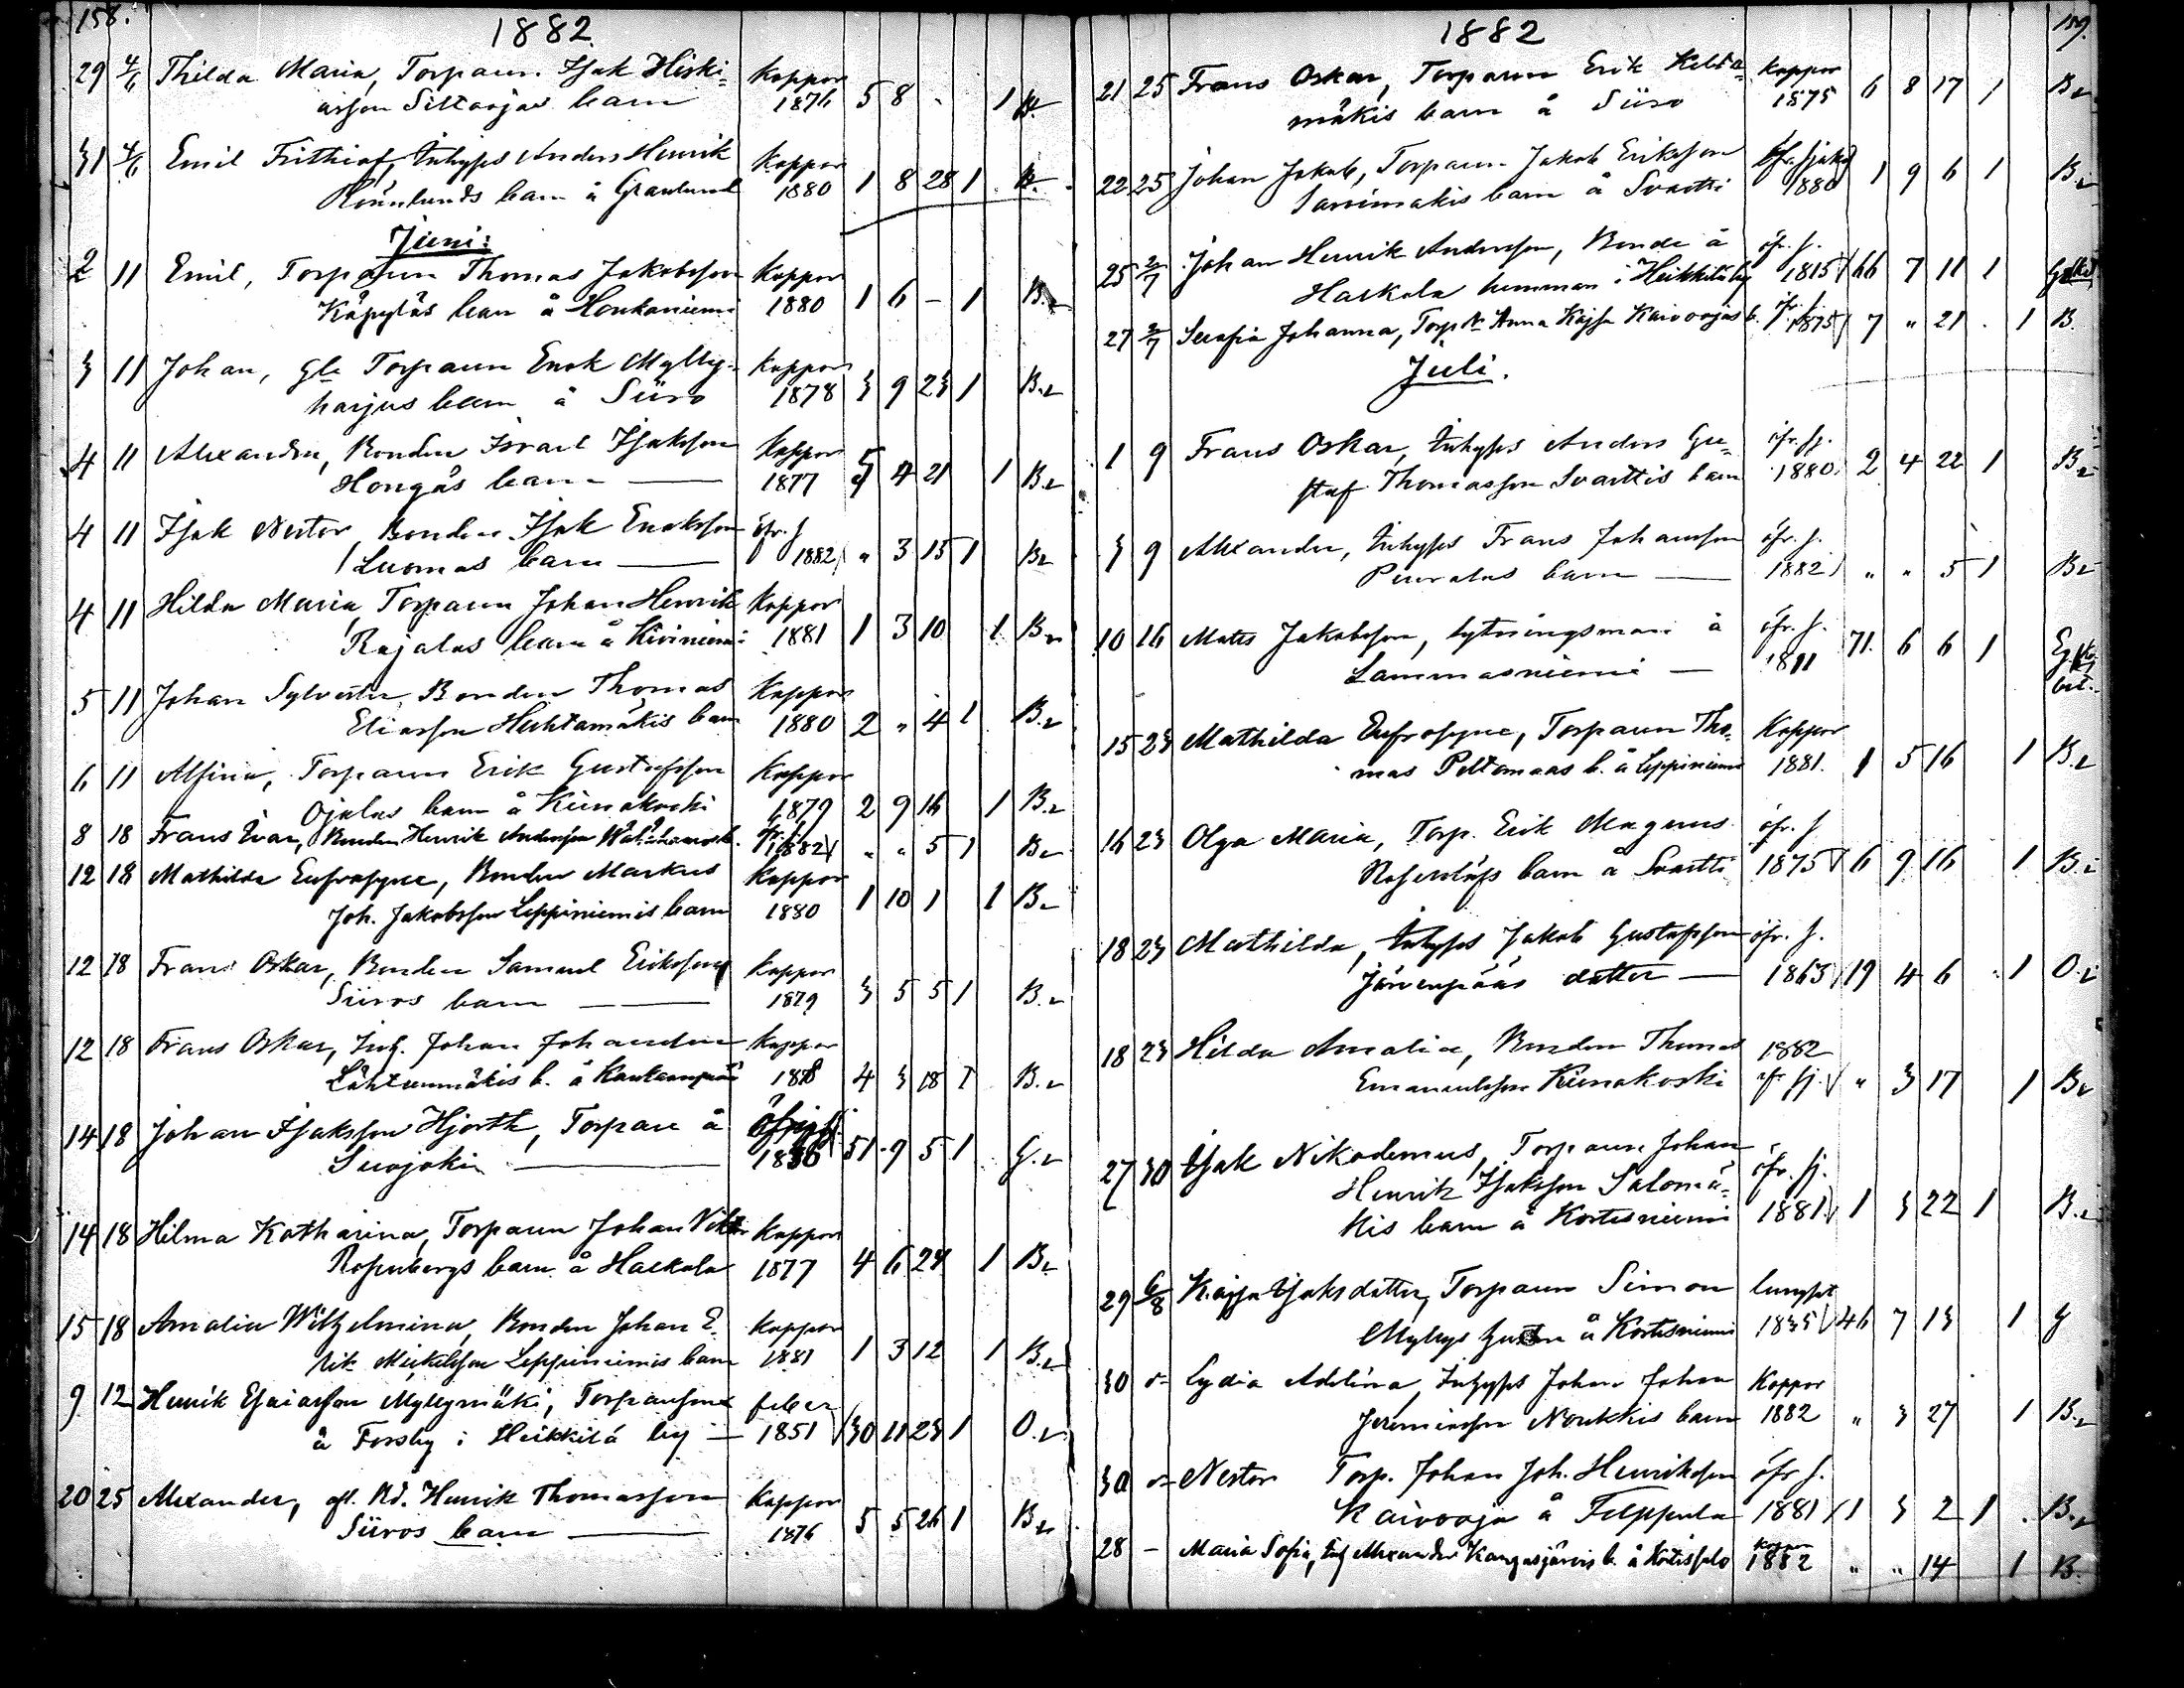 158.
1882
29 4/6 Thilda Maria, Torparen Isak Hiski- Koppor
asson Siltaojas barn 1876 5 8 - 1 B.
31 4/6 Emil Frithiof, Inhyses Anders Henrik Koppor
Rönnlunds barn å Granlund 1880 1 8 28 1
Juni:
2 11 Emil, Torparen Thomas Jakobsson Koppor
Käpyläs barn å Honkaniemi 1880 1 6 - 1 B.
3 11 Johan, Torparen Enok Mylly- Koppor
harjus barn å Siiro 1878 3 9 23 1 B.
4 11 Alexander, Bonden Israel Isaksson Koppor
Hongas barn — 1877 5 4 21 1 B.
4 11 Isak Nestor, Bonden Isak Enoksson öfr. s
Luomas barn — 1882 " 3 15 1 B
4 11 Hilda Maria, Torparen Johan Henrik Koppor
Rajalas barn å Kiviniemi 1881 1 3 10 1 B
5 11 Johan Sylvester, Bonden Thomas Koppor
Eliasson Huhtamäkis barn 1880 2 " 4 1 B.
6 11 Alfina, Torparen Erik Gustafsson Koppor
Ojalas barn å Kiinakoski 1879 2 9 16 1 B.
8 18 Frans Ivar, Bonden Henrik Andersson 1882 " " 5 1 B
12 18 Mathilda Eufrosyne, Bonden Markus Koppor
Joh. Jakobsson Leppiniemis barn 1880 1 10 1 1 B
12 18 Frans Oskar, Bonden Samuel Eriksson Koppor
Siiros barn — 1879 3 5 5 1 B.
12 18 Frans Oskar, Inh. Johan Johansson Koppor
Lähteenmäkis b. å 1878 4 3 18 1 B.
14 18 Johan Isaksson Hjorth, Torpare å
Suojoki — 51 9 5 1 G.
14 18 Hilma Katharina, Torparen Johan Viktor Koppor
Rosenbergs barn å Haekola 1877 4 6 24 1 B
15 18 Amalia Wilhelmina, Bonden Johan E- Koppor
rik Mickelsson Leppiniemis barn 1881 1 3 12 1 B.
9 12 Henrik Esaiasson Myllymäki, Torpareson feber
å Forsby i Heikkilä by — 1851 30 11 23 1 O.
20 25 Alexander, afl. Nd. Henrik Thomasson Koppor
Siiros barn — 1876 5 5 26 1 B
159.
1882
21 25 Frans Oskar, Torparen Erik Kelta- Koppor
mäkis barn å Siiro 1875 6 8 17 1 B
22 25 Johan Jakob, Torparen Jakob Eriksson
Sarvimäkis barn å Svartti 1880 1 9 6 1 B
25 2/7 Johan Henrik Andersson, Bonde å öfr. s.
Haekola hemman i Heikkilä by 1815 66 7 11 1
27 2/7 Serafia Johanna, Torp. Anna Kajsa Kaivoojas b. 1875 7 " 21 1 B.
Juli.
1 9 Frans Oskar, Inhyses Anders Gu- öfr. sj.
staf Thomasson Svarttis barn 1880 2 4 22 1 B
3 9 Alexander, Inhyses Frans Johansson öfr. s.
Puuralas barn — 1882 " " 5 1 B
10 16 Matts Jakobsson, sytningsman å öfr. s.
Lammasniemi — 1811 71. 6 6 1
15 23 Mathilda Eufrosyne, Torparen Tho- Koppor
mas Peltomaas b. å Leppiniemi 1881. 1 5 16 1 B.
16 23 Olga Maria, Torp. Erik Magnus öfr. s
Rosenlöfs barn å Svartti 1875 6 9 16 1 B.
18 23 Mathilda, Inhyses Jakob Gustafsson öfr. s.
Järvenpääs dotter — 1863 19 4 6 1 O.
18 23 Hilda Amalia, Bonden Thomas 1882
Emanuelsson Kiinakoski öfr sj. " 3 17 1 B
27 30 Isak Nikodemus, Torparen Johan öfr. sj.
Henrik Isaksson Salomä-
kis barn å Kortesniemi 1881 1 3 22 1 B.
29 6/8 Kajsa Isaksdotter, Torparen Simon lungsot
Myllys hustru å Kortesniemi 1835 46 7 13 1 G
30 Lydia Adelina, Inhyses Johan Johan Koppor
Jeremiasson Noukkis barn 1882 " 3 27 1 B.
30 Nestor Torp. Johan Joh. Henriksson öfr s.
Kaivooja å Filppula 1881 1 3 2 1 B.
28 - Maria Sofia, Inh Alexander Kangasjärvis b. å Koppor 1882 " " 14 1 B.